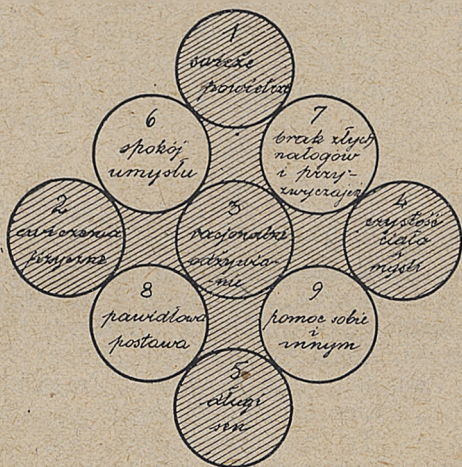 1
świeże
powietrze
6
spokój
umysłu
7
brak złych
nałogów
i przy-
zwyczajeń
2
ćwiczenia
fizyczne
3
racjonalne
odżywia-
nie
4
czystość
ciała
i
myśli
8
pawidłowa
postawa
9
pomoc sobie
i
innym
5
długi
sen